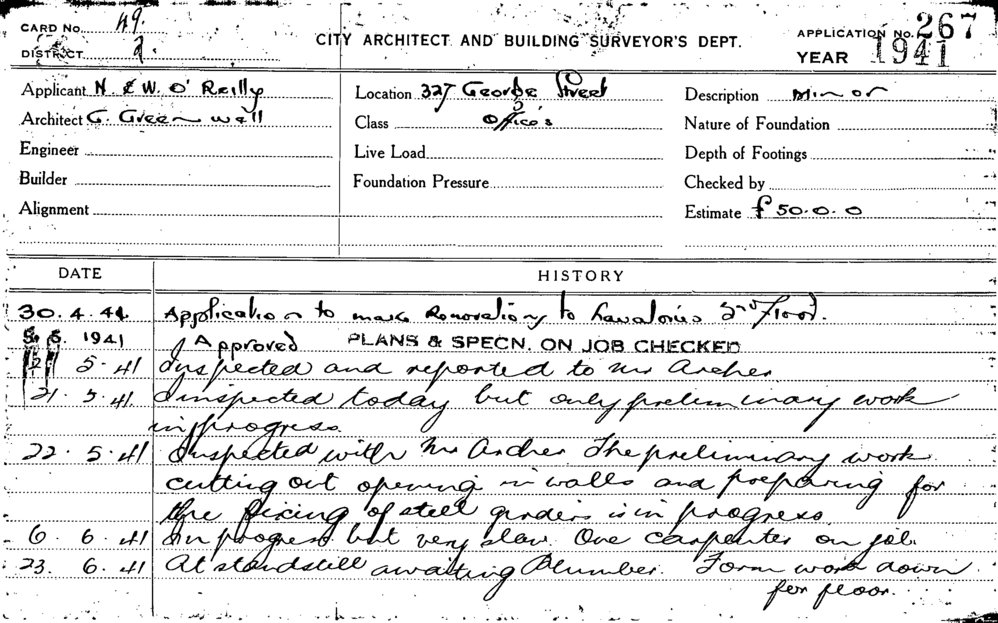 CARD No. 49.
DISTRICT 2.
CITY ARCHITECT AND BUILDING SURVEYOR'S DEPT.
APPLICATION No. 267
YEAR 1941
Applicant N. & W. O'Reilly
Architect G. Greenwell
Engineer
Builder
Alignment
Location 327 George Street
Class Offices
Live Load
Foundation Pressure
Description Minor
Nature of Foundation
Depth of Footings
Checked by
Estimate £50.0.0
DATE HISTORY
30.4.41 Application to make Renovations to Lavatories 2nd Floor.
1941 Approved PLANS & SPECN. ON JOB CHECKED
5.41 Inspected and reported to Mr Archer
21.5.41. I inspected today but only preliminary work
in progress.
22.5.41 Inspected with Mr Archer The preliminary work
cutting out opening in walls and preparing for
the fixing of steel girders is in progress.
6.6.41 In progress but very slow. One carpenter on job.
23.6.41 At standstill awaiting Plumber. Form work down
for floor.